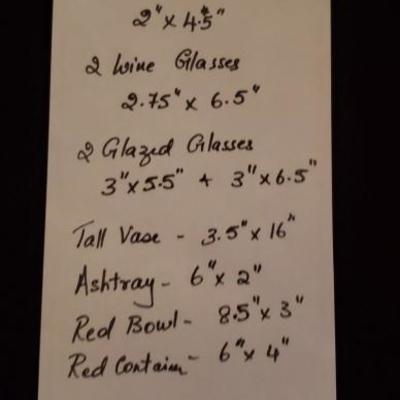 2" x 4.5"
2 Wine Glasses
2.75" x 6.5"
2 Glazed Glasses
3" x 5.5" + 3" x 6.5"
Tall Vase - 3.5" x 16"
Ashtray - 6" x 2"
Red Bowl - 8.5" x 3"
Red - 6" x 4"